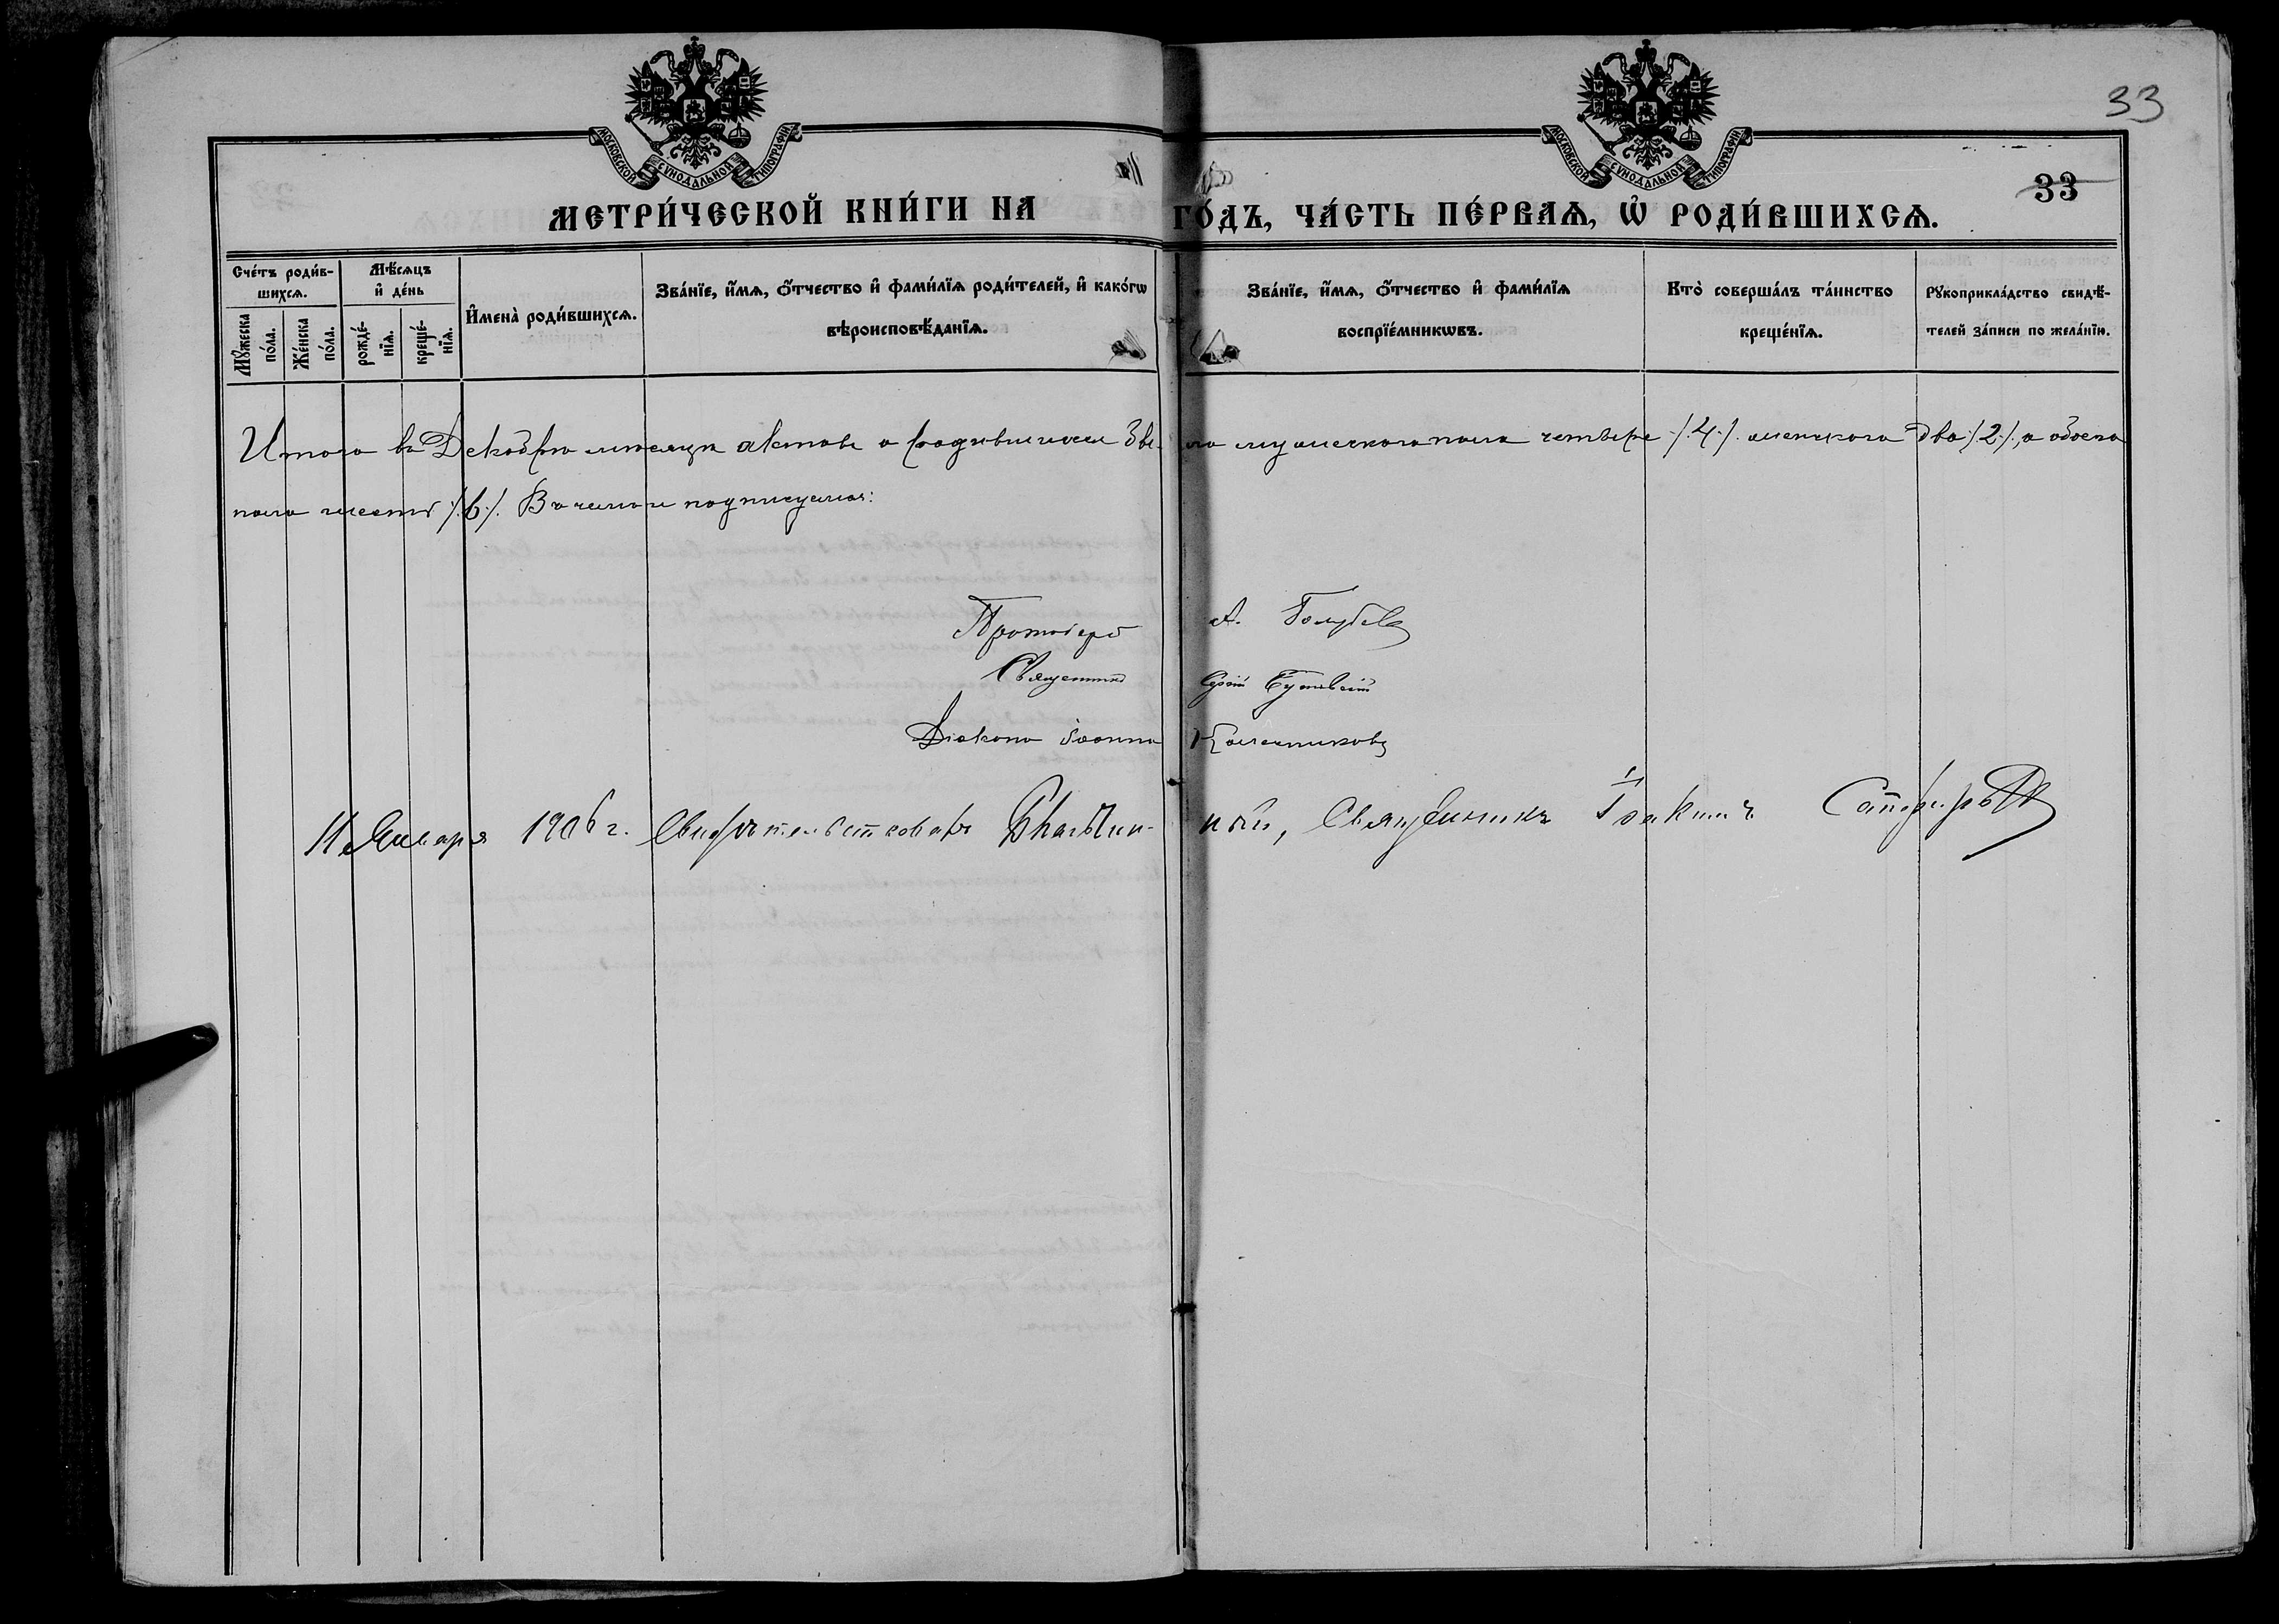 МОСКОВСКОЙ СѴНОДАЛЬНОЙ ТИПОГРАФІИ
МОСКОВСКОЙ СѴНОДАЛЬНОЙ ТИПОГРАФІИ
33
33
МЕТРИ́ЧЕСКОЙ КНИ́ГИ НА ГО́ДЪ, ЧА́СТЬ ПЕ́РВАѦ, Ѡ҆ РОДИ́ВШИХСѦ.
Сче́тъ роди́в-
шихсѧ.
Мꙋ́жеска
по́ла.
Же́нска
по́ла.
Мѣ́сѧцъ
и҆ де́нь
рожде́-
нїѧ.
креще́-
нїѧ.
И҆мена̀ роди́вшихсѧ.
Зва́нїе, и҆́мѧ, ѻ҆́тчество и҆ фами́лїѧ роди́телей, и҆ како́гѡ
вѣроисповѣ́данїѧ.
Зва́нїе, и҆́мѧ, ѻ҆́тчество и҆ фами́лїѧ
воспрїе́мникѡвъ.
Кто̀ соверша́лъ та́инство
креще́нїѧ.
Рꙋкоприкла́дство свидѣ́-
телей за́писи по жела́нїю.
Итого въ Декабрѣ мѣсяцѣ актовъ о родившихся было мужескаго пола четыре /.4./. женскаго два /.2./., а обоего
пола шесть /.6./. В чемъ и подписуемся:
Протоіерей А. Голубевъ
Священникъ Сергій
Діаконъ Іоаннъ
11 Января 1906 г. Свидѣтельствовалъ Благочинный, Священникъ Іоакимъ